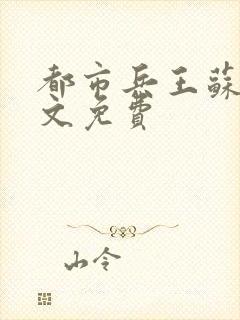 都市兵王蘇
文免費
山令